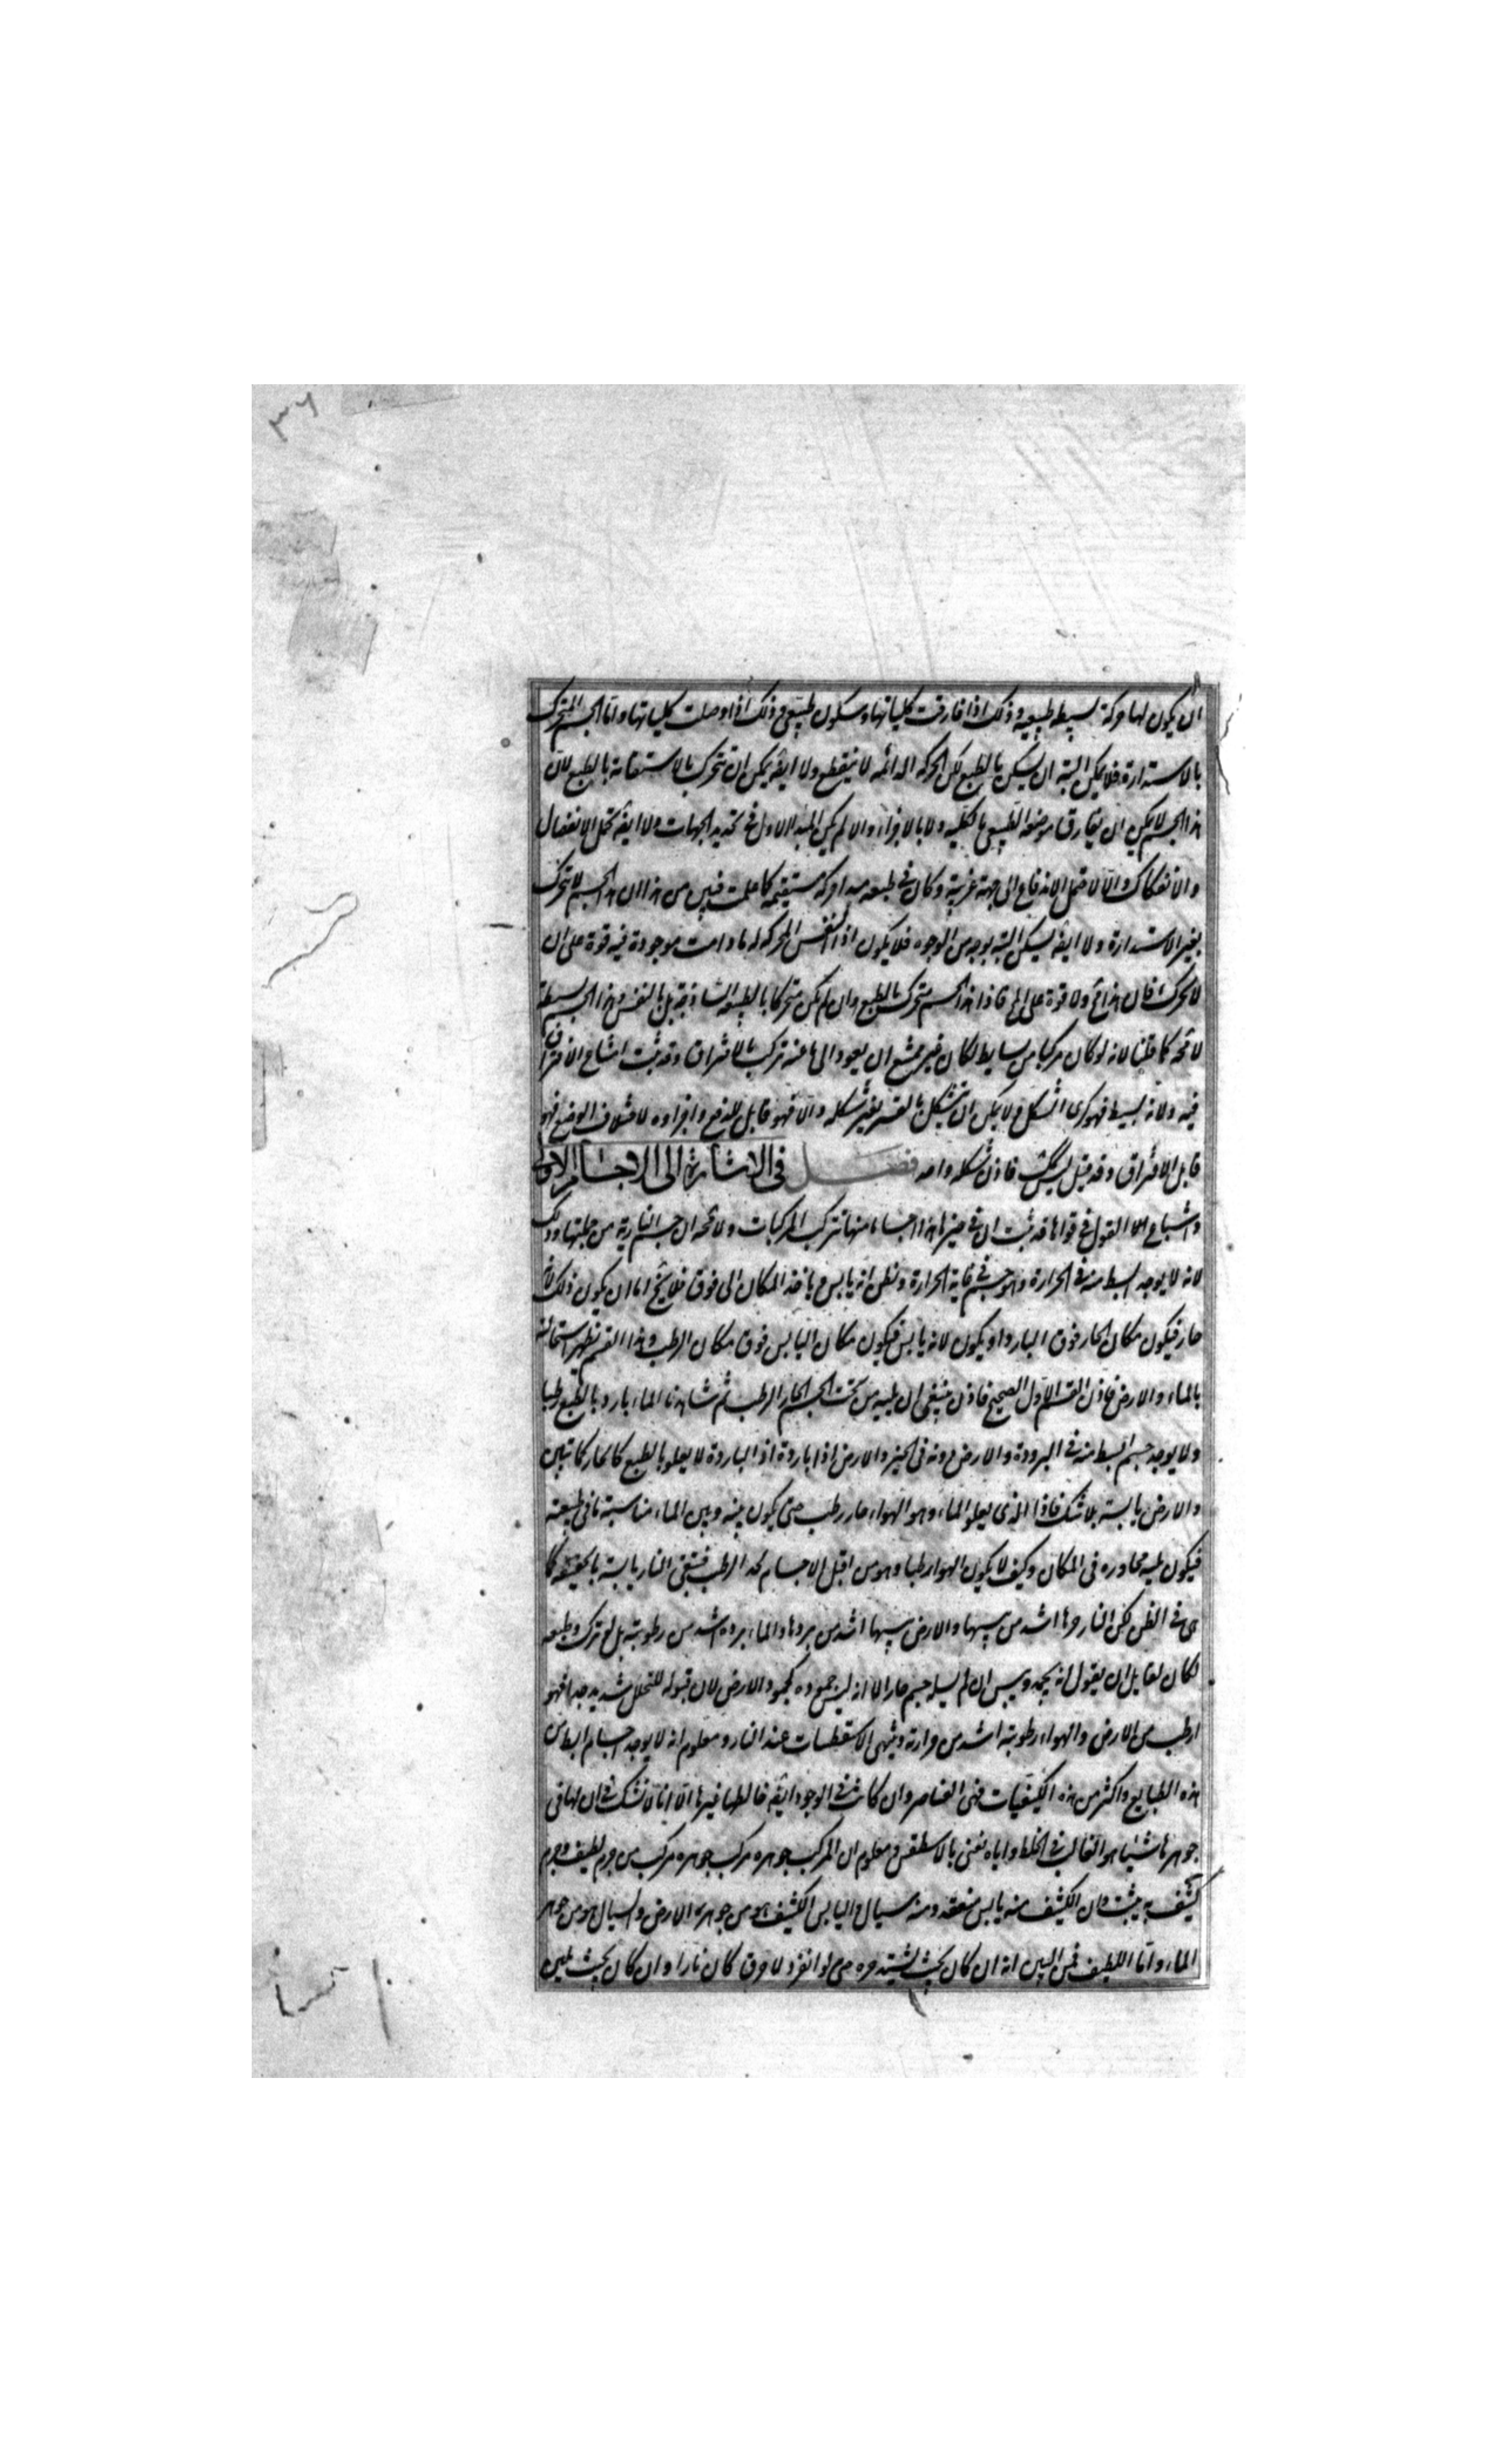 ٣٦
ان يكون لها حركة بسيطه طبيعيه و ذلك اذا فارقت كلياتها وسكون طبيعى و ذلك اذا وصلت كلياتها واما الجسم المتحرك
بالاستدارة فلا يمكن البتة ان يسكن بالطبع لكن الحركه الدائمه لا ينقطع ولا ايضا يمكن ان تتحرك بالاستقامة بالطبع لان
هذا الجسم لا يمكن ان يفارق موضعه الطبيعى بالكليه ولا بالاجزاء والا لم يكن المبدا الاول فى تحديد الجهات ولا ايضا تحمل الانفصال
والانفكاك والا لاحتمل الاندفاع الى جهة غريبة وكان فى طبعه مبدا حركة مستقيمة كما علمت فبين من هذا ان هذا الجسم لا يتحرك
بغير الاستدارة ولا ايضا يسكن البتة بوجه من الوجوه فلا يكون اذا النفس المحركه له ما دامت موجودة فيه قوة على ان
لا تحرك فان هذا ولا قوة على فاذا هذا الجسم متحرك بالطبع وان لم يكن متحركا بالطبيعه الساذجة بل بالنفس وهذا الجسم بسيط
لا محه كما قلنا لانه لو كان مركبا من بسايط لكان غير ممتنع ان يعود الى ما عنه تركب بالافتراق وقد ثبت امتناع الافتراق
فيه ولانه بسيط فهو كرى الشكل ولا يمكن ان يتشكل بالقسر بغير شكله والا فهو قابل للدفع واجزاوه لاختلاف الوضع فهو
قابل الافتراق وقد قيل ليس كك فاذن شكله واحد فصل فى الاشارة الى الاجسام الاولى
واشباع القول فى قواها قد ثبت ان فى حيزها هذا اجساما منها تتركب المركبات ولا محه ان جسم النارية من جملتها وذلك
لانه لا يوجد ابسط منه فى الحرارة وهو جسم فى غاية الحرارة ونظن انه يابس وياخذ المكان الى فوق فلا يخ اما ان يكون ذلك لانه
حار فيكون مكان الحار فوق البارد او يكون لانه يابس فيكون مكان اليابس فوق مكان الرطب وهذا القسم تظهر استحالته
بالماء والارض فاذن القسم الاول الصحيح فاذن ينبغى ان يليه من تحت الجسم الحار الرطب ثم شاهدنا الماء باردا بالطبع رطبا
ولا يوجد جسم ابسط منه فى البرودة والارض دونه فى الحيز والارض اذا باردة اذ الباردة لا يعلو بالطبع كالحار كما تبين
والارض يابسة بلا شك فاذا الذى يعلو الماء وهو الهواء حار رطب حتى يكون بينه وبين الماء مناسبة ما فى طبيعته
فيكون يليه مجاوره فى المكان وكيف لا يكون الهوا رطبا وهو من اقبل الاجسام لحد الرطب فتبقى النار يابسة بالحقيقه كما
هى فى الظن لكن النار حرها اشد من يبسها والارض يبسها اشد من بردها والماء برده اشد من رطوبته بل لو ترك وطبعه
لكان لقايل ان يقول انه يجمد وييبس ان لم يسيله جسم حار الا انه ليس جموده كجمود الارض لان قبوله للتحلل شديد جدا فهو
ارطب من الارض والهواء رطوبته اشد من حرارته وينتهى الاسقطسات عند النار ومعلوم انه لا يوجد اجسام ابسط من
هذه الطبايع واكثر من هذه الكيفيات فهى العناصر وان كانت فى الوجود ايضا خالطها غيرها الا انا لا نشك فى ان لها فى
جوهرها شيئا هو الغالب فى الخلط واياه نعنى بالاسطقس ومعلوم ان المركب جوهره مركب جوهره مركب من جرم لطيف وجرم
كثيف به يثبت وان الكثيف منه يابس منعقد ومنه سيال واليابس الكثيف هو من جوهر الارض والسيال هو من جوهر
الماء واما اللطيف فمن البين انه ان كان بحيث يشتد حره حتى لو انفرد لاحرق كان نارا وان كان بحيث يلين